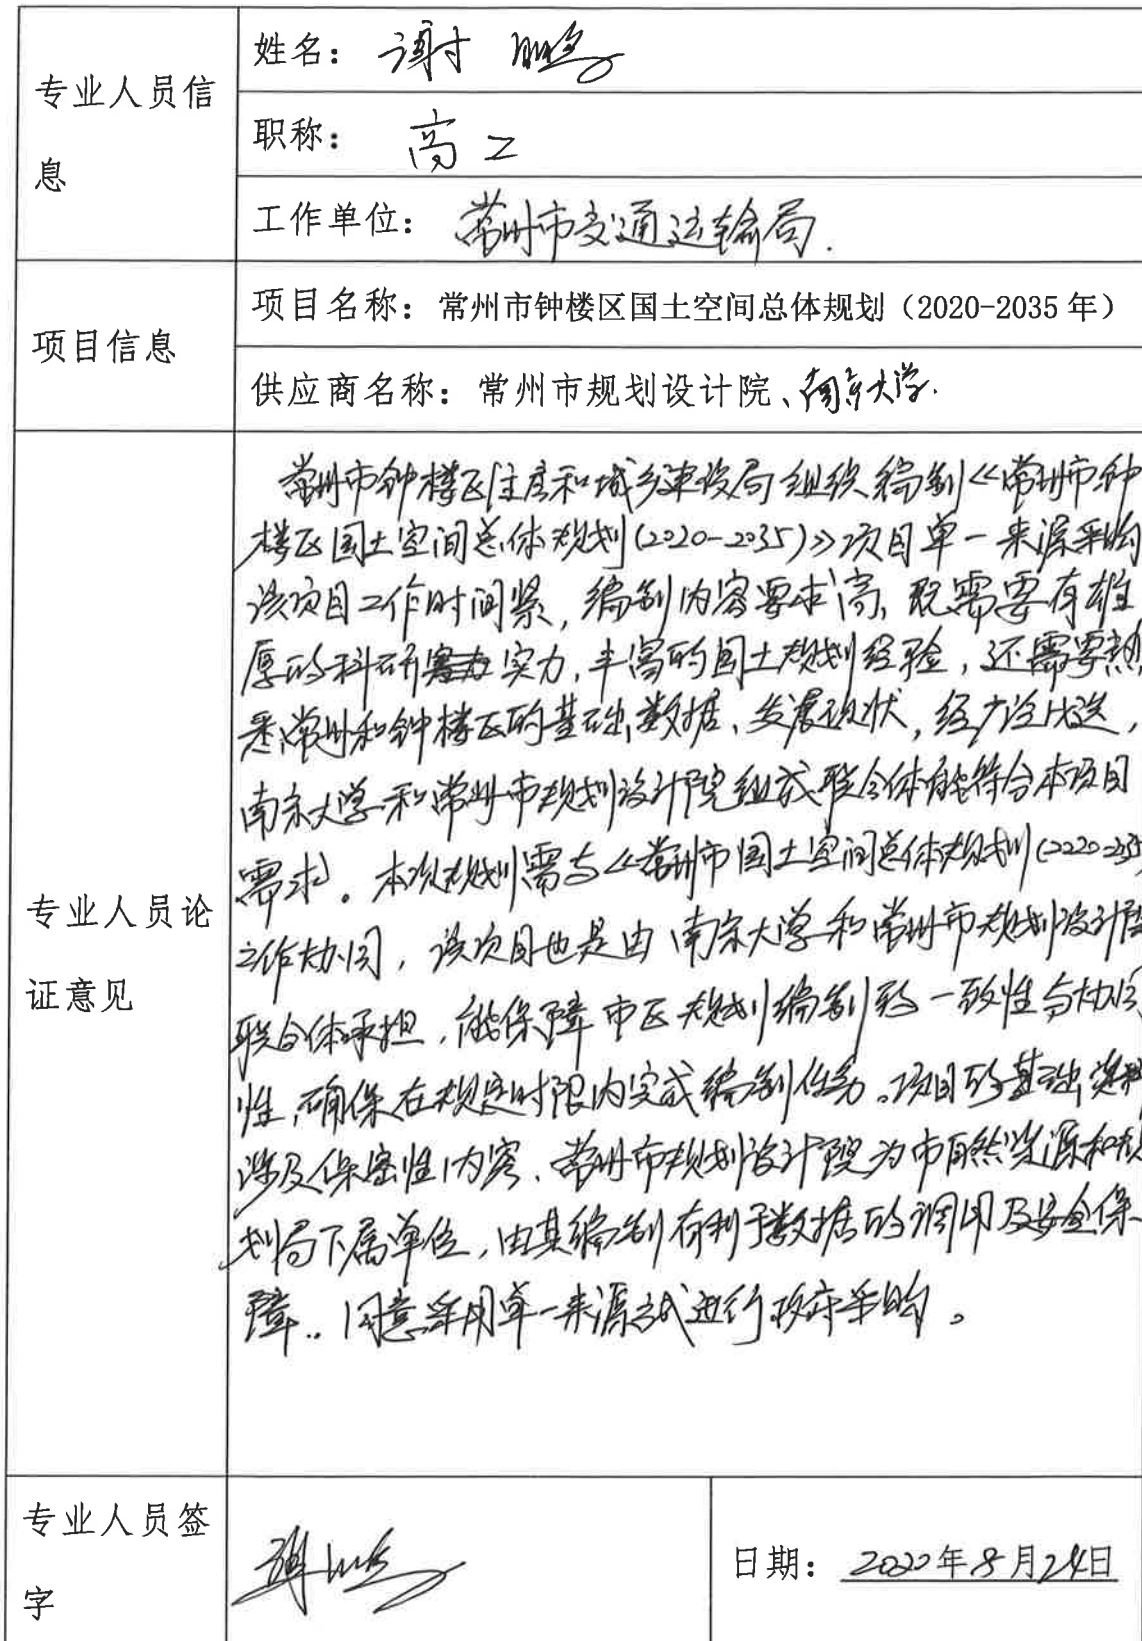 专业人员信息
姓名：谢鹏
职称：高工
工作单位：常州市交通运输局.
项目信息
项目名称：常州市钟楼区国土空间总体规划（2020-2035 年）
供应商名称：常州市规划设计院、南京大学.
专业人员论证意见
常州市钟楼区住房和城乡建设局组织编制《常州市钟
楼区国土空间总体规划(2020-2035)》项目单一来源采购
该项目工作时间紧，编制内容要求高，既需要有雄
厚的科研实力，丰富的国土规划经验，还需要熟
悉常州和钟楼区的基础数据、发展现状，经方论比选，
南京大学和常州市规划设计院组成联合体能符合本项目
需求。本次规划需与《常州市国土空间总体规划(2020-2035
工作协同，该项目也是由南京大学和常州市规划设计院
联合体承担，能保障市区规划编制的一致性与协同
性，确保在规定时限内完成编制任务。项目的基础资料
涉及保密性内容，常州市规划设计院为市自然资源和规
划局下属单位，由其编制有利于数据的调用及安全保
障..同意采用单一来源方式进行政府采购。
专业人员签字
谢鹏
日期：2020年8月24日